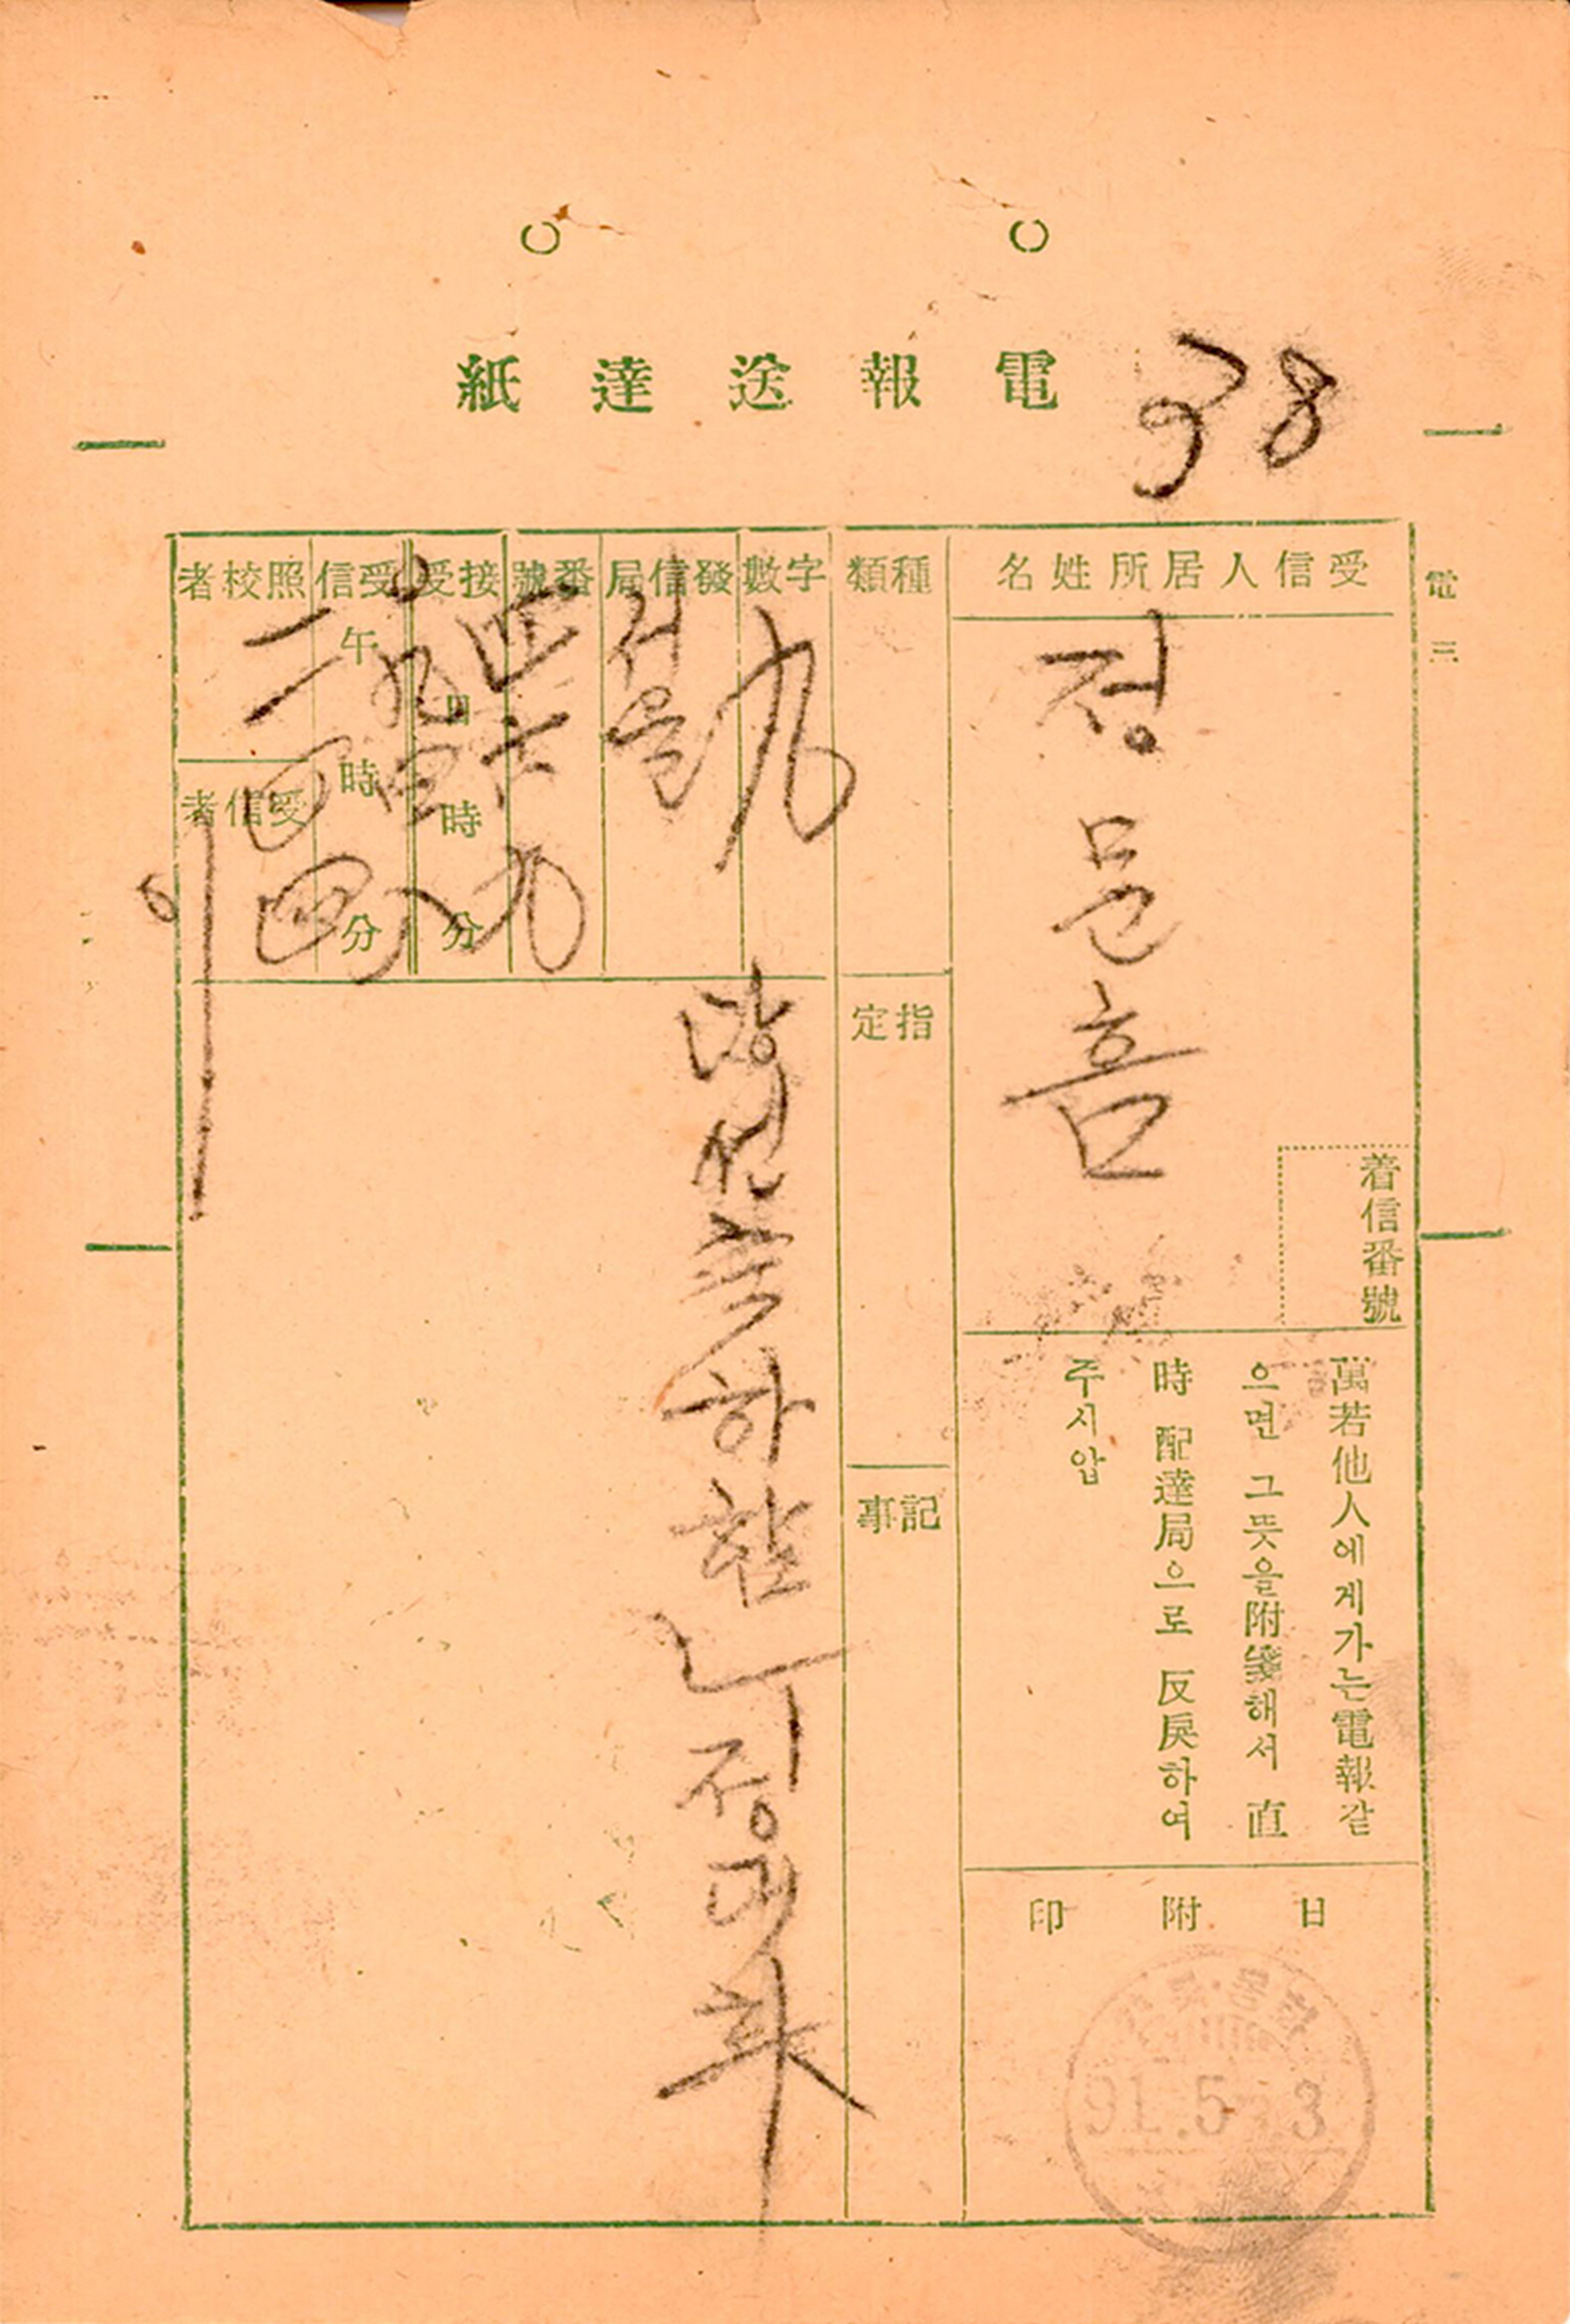 電報送達紙
38
電三
受信人居所姓名
정문흠
着信番號
萬若他人에게가는電報같
으면 그뜻을附箋해서 直
時 配達局으로 反戾하여
주시압
日附印
91.5.3
種類
指定
記事
字數
九
發信局
서울
番號
四六九
接受
日
時
分
受信
午
時
分
照校者
受信者
이
당선축하합니
정대화